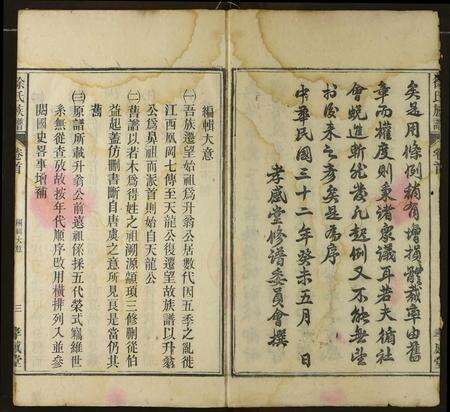 矣是用條例稍有增損體裁率由舊
章而權度則秉諸衆議耳若夫循社
會蛻進斬絶發凡起例又不能無望
於後来之君子矣是為序
中華民國三十二年癸未五月 日
孝感堂修譜委員會撰
徐氏族譜
卷首
編輯大意
三
孝感堂
編輯大意
㈠吾族遷望始祖爲升翁公居數代因五季之亂徙
江西鳳岡七傳至天龍公復遷望故族譜以升翁
公爲鼻祖而派首則始自天龍公
㈡舊譜以若木爲得姓之祖溯源顓頊三修刪從伯
益起蓋仿刪書斷自唐虞之意所見良是當仍其
舊
㈢原譜所載升翁公前遠祖係採五代榮式竊維世
系無從查攷故按年代順序改用橫排列入並參
閱國史畧事增補